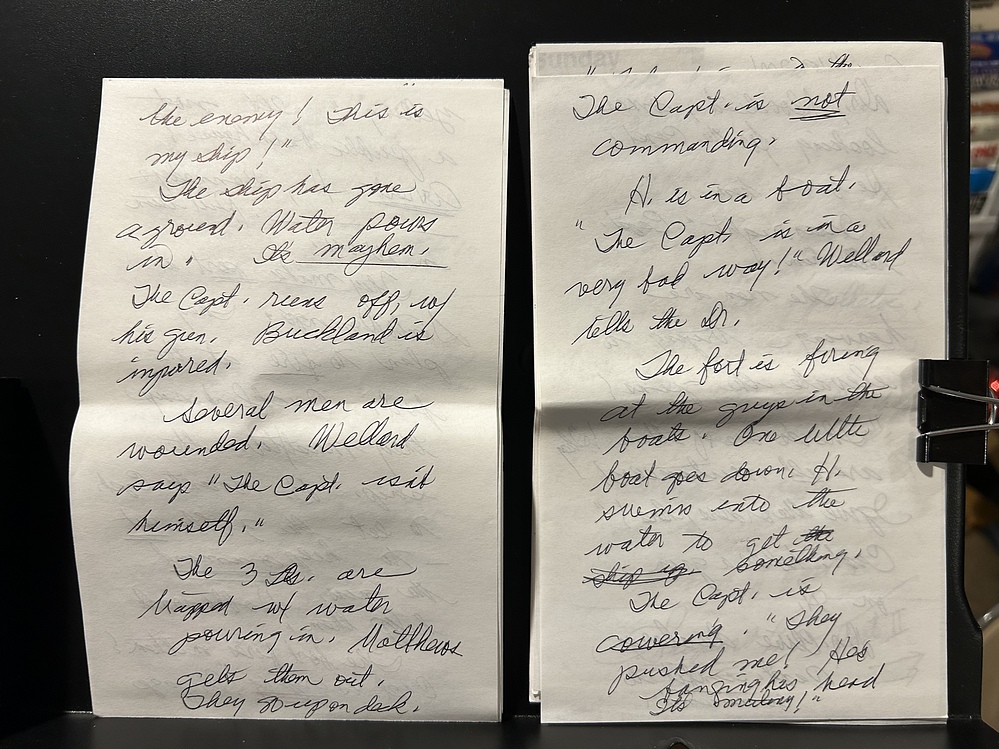 the enemy! This is
my ship!"
The ship has gone
aground. Water pours
in. Its mayhem.
The Capt. runs off, w/
his gun. Buckland is
injured.
Several men are
wounded. Wellard
says "The Capt. isn't
himself."
The 3 Lts. are
trapped w/ water
pouring in. Matthews
gets them out.
They go up on deck.
the
The Capt. is not
commanding.
H. is in a boat.
"The Capt. is in a
very bad way!" Wellard
tells the Dr.
The fort is firing
at the guys in the
boats. One little
boat goes down. H.
swims into the
water to get the
ship up something.
The Capt. is
cowering. "They
pushed me! Hes
banging his head
Its mutiny!"